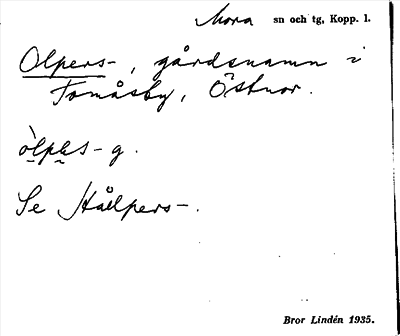 Mora sn och tg, Kopp. l.
Olpers-, gårdsnamn i
Tomåsby, Östnor.
òlpəs-g.
Se Hålpers-.
Bror Lindén 1935.